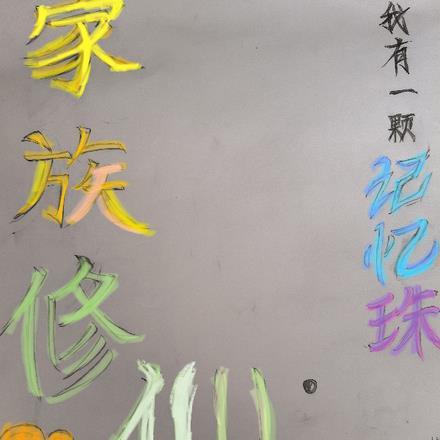 我有一颗记忆珠
家族修